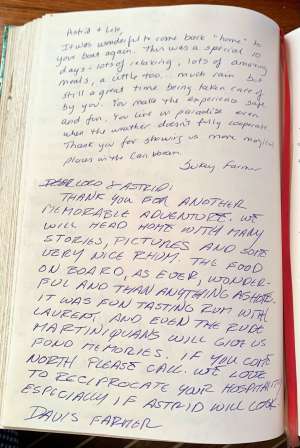 Astrid + Loïc,
It was wonderful to come back "home" to
your boat again. This was a special 10
days - lots of relaxing, lots of amazing
meals, a little too much rain but
still a great time being taken care of
by you. You make the experience safe
and fun. You live in paradise even
when the weather doesn't fully cooperate.
Thank you for showing us more magical
places in the Caribbean.
Farmer
DEAR LOÏC & ASTRID,
THANK YOU FOR ANOTHER
MEMORABLE ADVENTURE. WE
WILL HEAD HOME WITH MANY
STORIES, PICTURES AND SOME
VERY NICE RHUM. THE FOOD
ON BOARD, AS EVER, WONDER-
FUL AND THAN ANYTHING ASHORE.
IT WAS FUN TASTING RUM WITH
LAURENT, AND EVEN THE RUDE
MARTINIQUANS WILL GIVE US
FOND MEMORIES. IF YOU COME
NORTH PLEASE CALL. WE LOOK
TO RECIPROCATE YOUR HOSPITALITY
ESPECIALLY IF ASTRID WILL COOK.
DAVIS FARMER